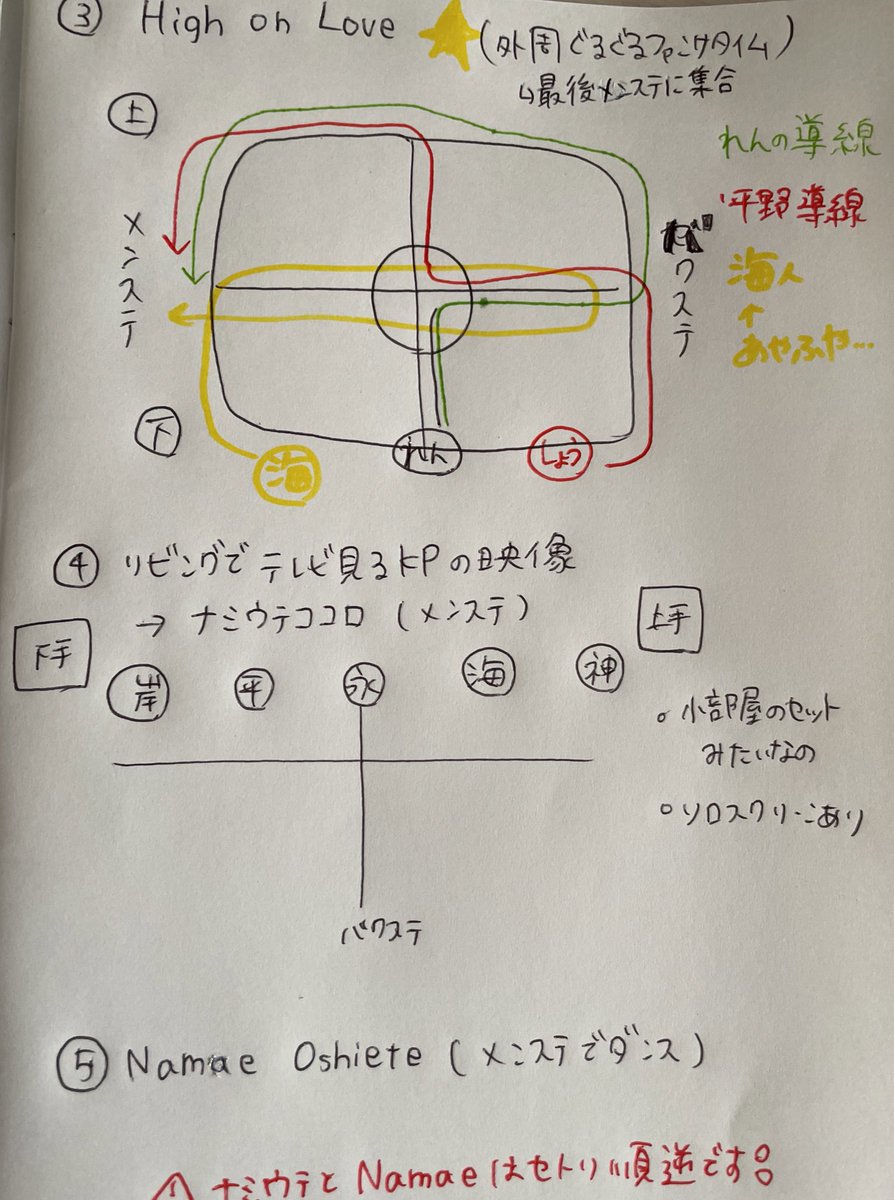 ③ High on Love ★ (外周ぐるぐるファンサタイム)
↳最後メンステに集合
上
れんの導線
平野導線
海人
↑
あやふや…
メンステ
バクステ
下
海
れん
しょう
④ リビングでテレビ見るKPの映像
→ ナミウテココロ (メンステ)
下手
上手
岸 平 永 海 神
○ 小部屋のセット
みたいなの
○ ソロスクリーンあり
バクステ
⑤ Namae Oshiete (メンステでダンス)
ナミウテとNamaeはセトリ順逆です